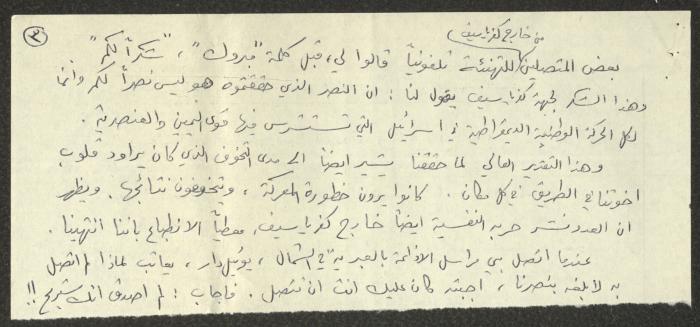 ٣
من خارج كفر ياسيف
بعض المتصلين للتهنئة تلفونيًا قالوا لي، قبل كلمة "مبروك"، "شكرًا لكم".
وهذا الشكر لجبهة كفر ياسيف يقول لنا: ان النصر الذي حققتموه هو ليس نصرًا لكم وانما
لكل الحركة الوطنية الديمقراطية في اسرائيل التي تستشرس فيها قوى اليمين والعنصرية.
وهذا التقدير العالي لما حققنا يشير ايضًا الى مدى التخوف الذي كان يراود قلوب
اخوتنا في الطريق في كل مكان. كانوا يرون خطورة المعركة، ويتخوفون نتائجها. ويظهر
ان العدو نشر حربه النفسية ايضًا خارج كفر ياسيف، معطيًا الانطباع باننا انتهينا.
عندما اتصل بي مراسل الاذاعة بالعبرية في الشمال، يوئيل دار، يعاتب لماذا لم اتصل
به لابلغه بنصرنا، اجبته كان عليك انت ان تتصل. فاجاب: لم اصدق انك ستربح!!